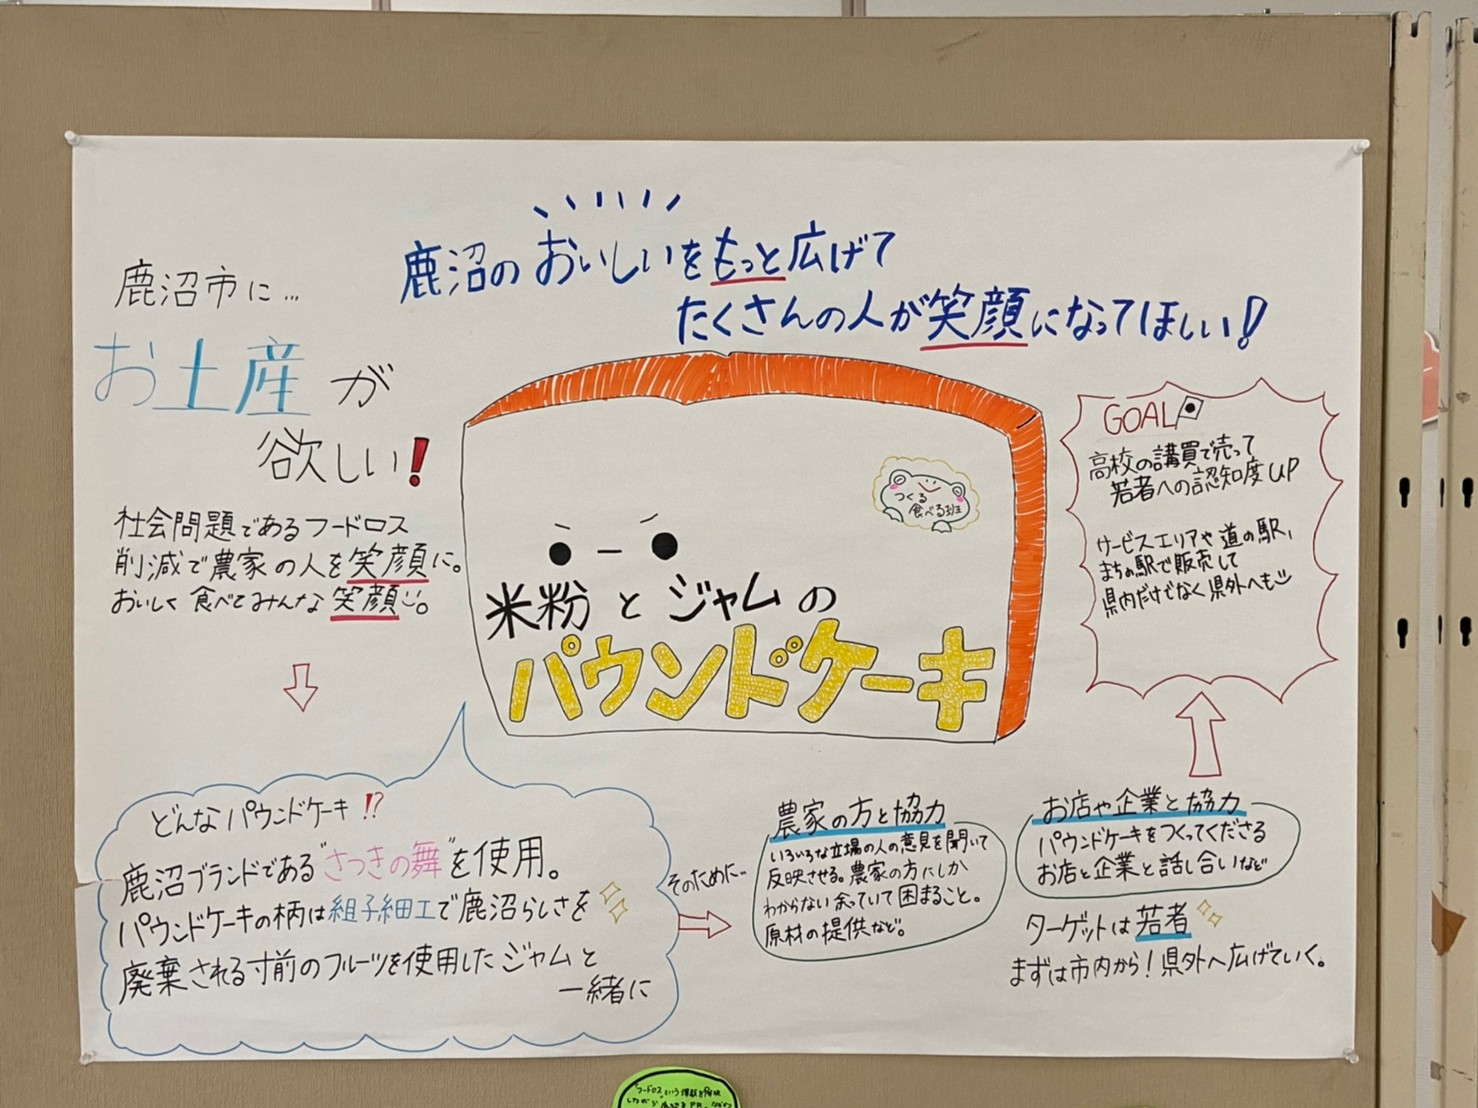 鹿沼のおいしいをもっと広げて
たくさんの人が笑顔になってほしい!
鹿沼市に...
お土産が
欲しい!
社会問題であるフードロス
削減で農家の人を笑顔に。
おいしく食べてみんな笑顔。
つくる
食べる班
米粉とジャムの
パウンドケーキ
GOAL
高校の講買で売って
若者への認知度UP
サービスエリアや道の駅,
まちの駅で販売して
県内だけでなく県外へも
どんなパウンドケーキ!?
鹿沼ブランドである"さつきの舞"を使用。
パウンドケーキの柄は組子細工で鹿沼らしさを
廃棄される寸前のフルーツを使用したジャムと
一緒に
そのために…
農家の方と協力
いろいろな立場の人の意見を聞いて
反映させる。農家の方にしか
わからない余っていて困まること。
原材の提供など。
お店や企業と協力
パウンドケーキをつくってくださる
お店と企業と話し合いなど
ターゲットは若者
まずは市内から!県外へ広げていく。
フードロスという課題を解決